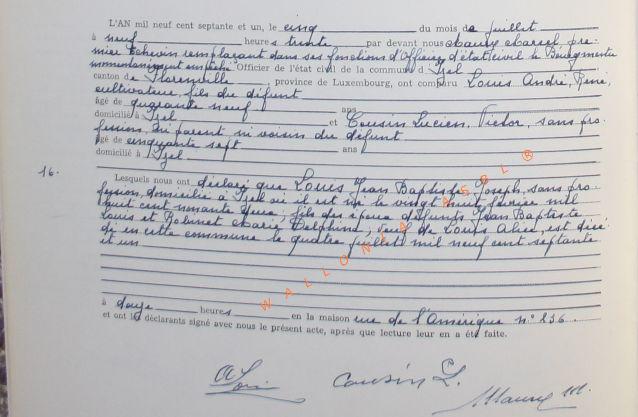 L'AN mil neuf cent septante et un, le cinq du mois de juillet
à neuf heures trente par devant nous Maury Marcel, pre-
mier Echevin remplaçant dans ses fonctions d'Officier d'état civil le Bourgmestre
momentanément empêché Officier de l'état civil de la commune d'Izel
canton de Florenville, province de Luxembourg, ont comparu Louis André, René,
cultivateur, fils du défunt
âgé de quarante neuf ans
domicilié à Izel et Cousin Lucien, Victor, sans pro-
fession, ni parent ni voisin du défunt
âgé de cinquante sept ans
domicilié à Izel
16.
Lesquels nous ont déclaré que Louis, Jean Baptiste Joseph, sans pro-
fession, domicilié à Izel où il est né le vingt huit février mil
huit cent nonante deux, fils des époux défunts, Jean Baptiste
Louis et Robinet Marie Delphine, veuf de Louis Alice, est décé-
dé en cette commune le quatre juillet mil neuf cent septante
et un
à douze heures en la maison rue de l'Amérique n° 236
et ont les déclarants signé avec nous le présent acte, après que lecture leur en a été faite.
Cousin L. Maury M.
WALLONIA ASBL ®